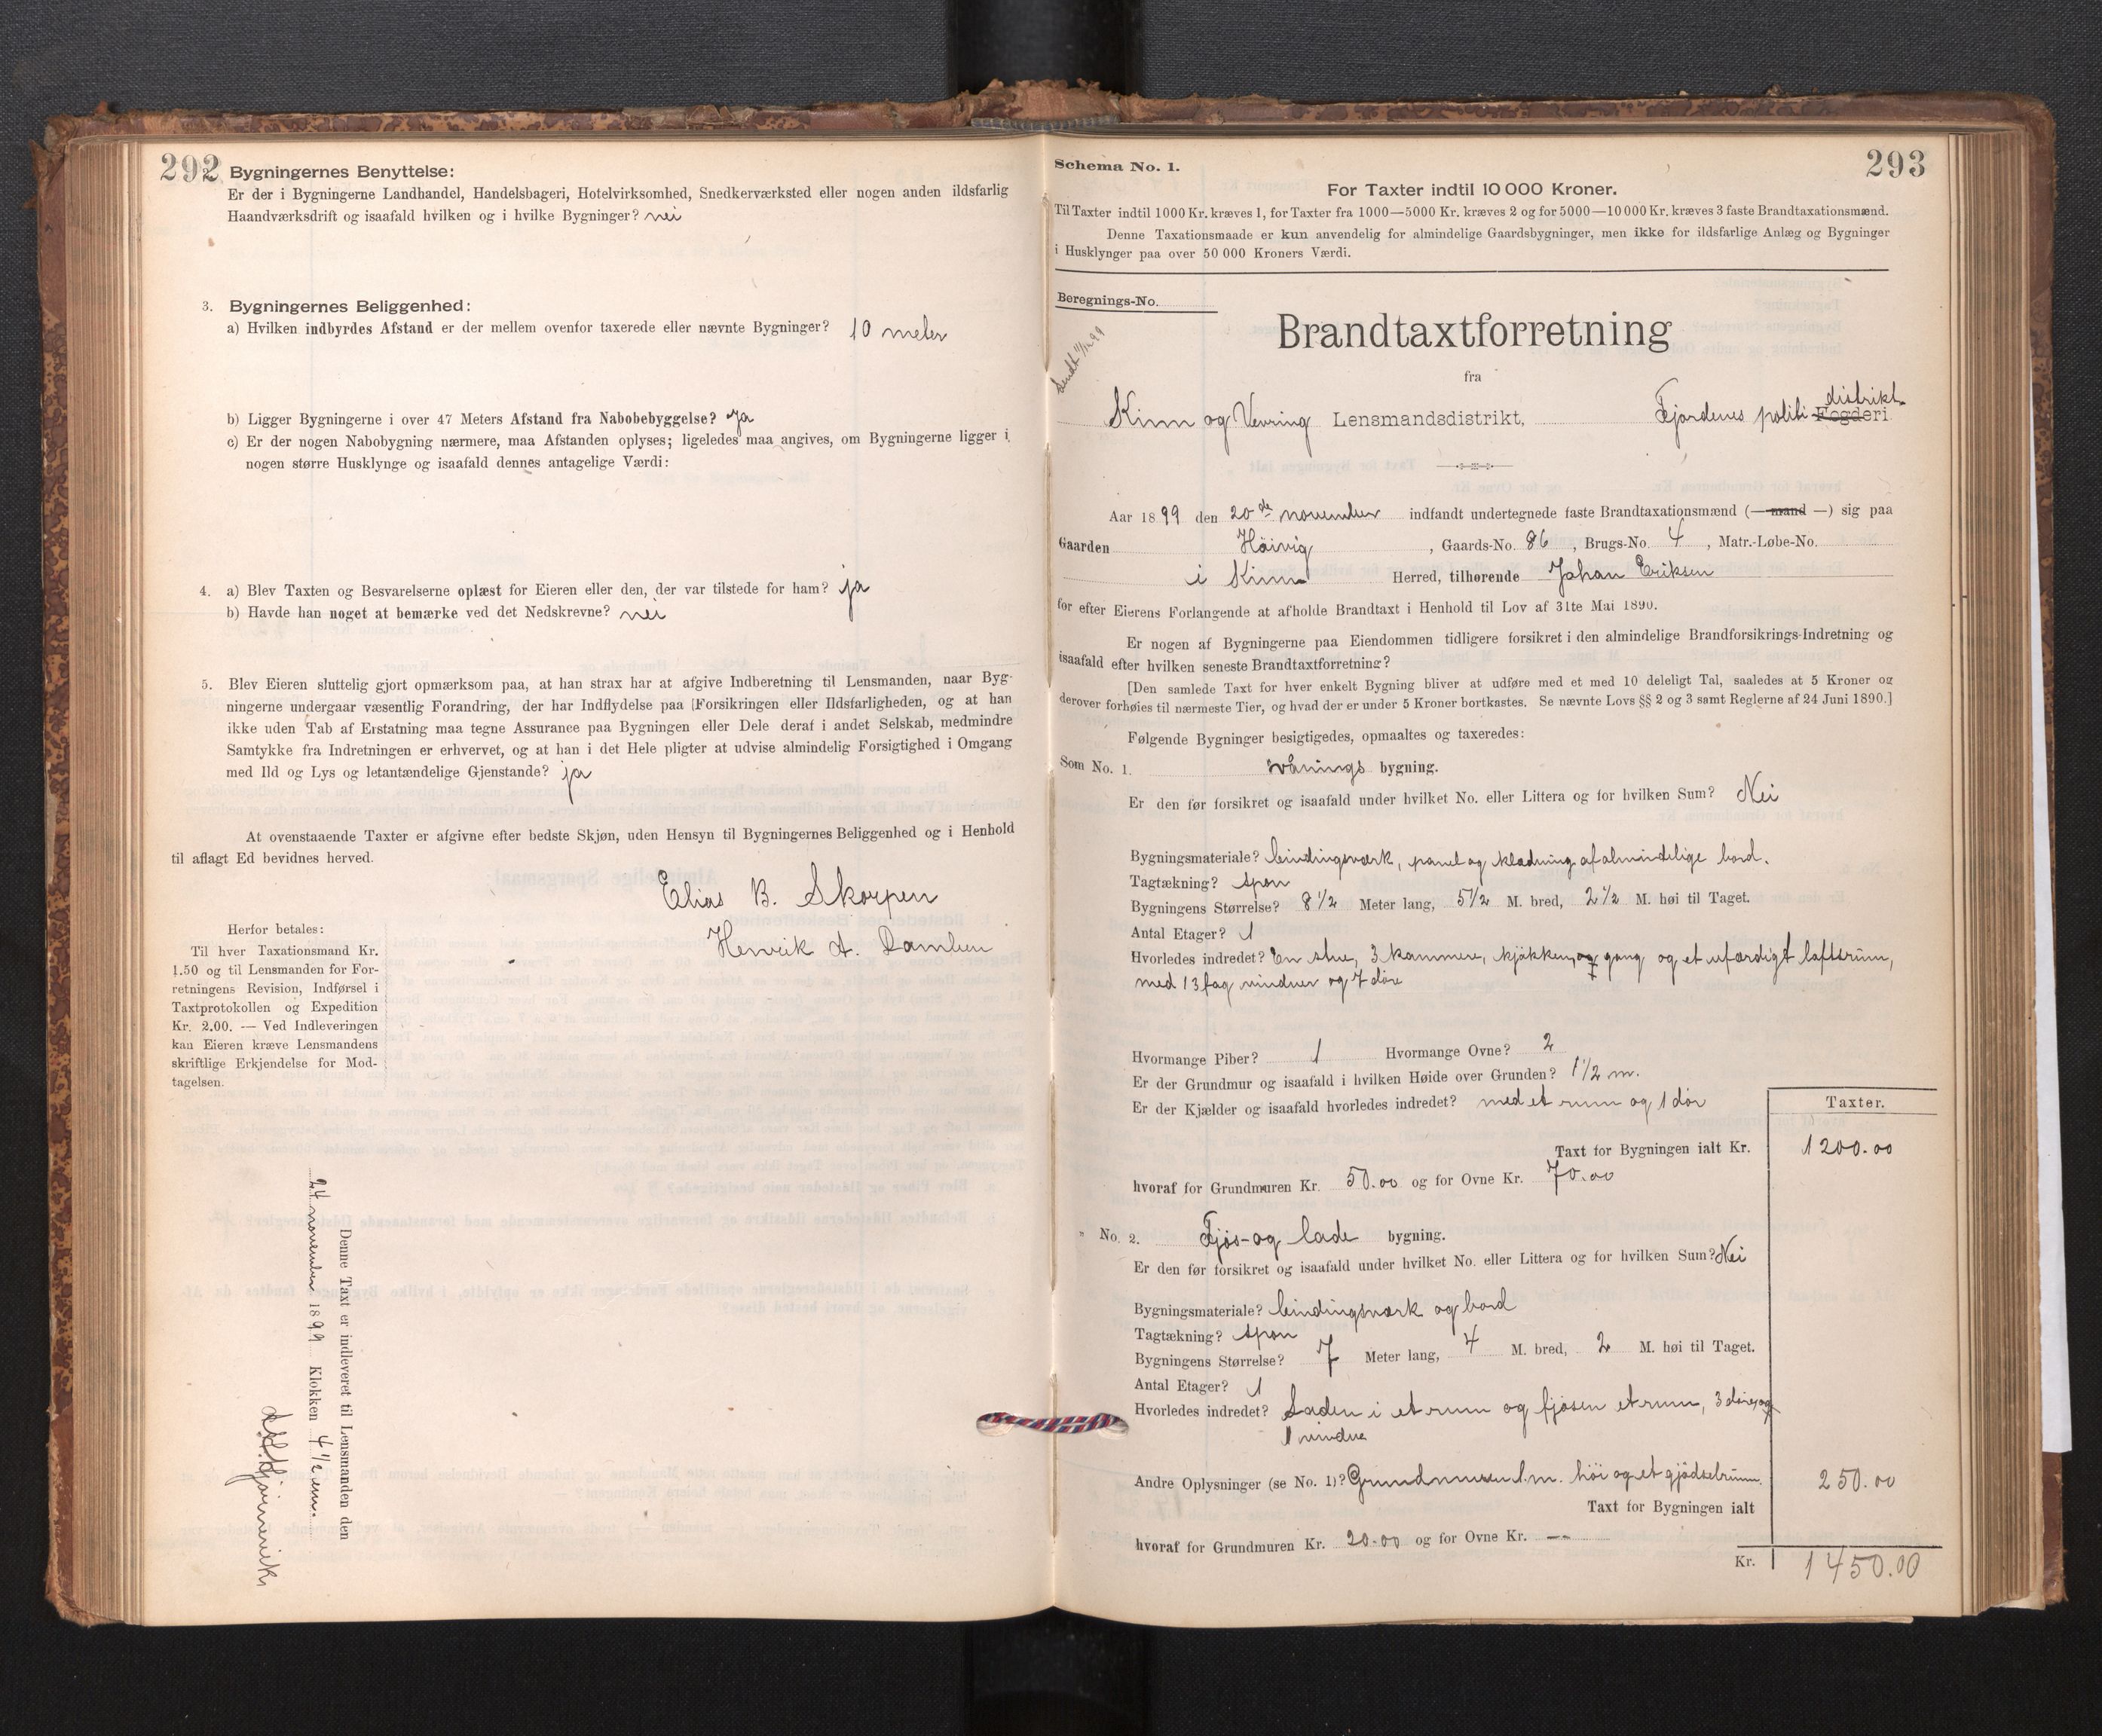 292
Bygningernes Benyttelse:
Er der i Bygningerne Landhandel, Handelsbageri, Hotelvirksomhed, Snedkerværksted eller nogen anden ildsfarlig
Haandværksdrift og isaafald hvilken og i hvilke Bygninger? nei
3. Bygningernes Beliggenhed:
a) Hvilken indbyrdes Afstand er der mellem ovenfor taxerede eller nævnte Bygninger? 10 meter
b) Ligger Bygningerne i over 47 Meters Afstand fra Nabobebyggelse? Ja
c) Er der nogen Nabobygning nærmere, maa Afstanden oplyses; ligeledes maa angives, om Bygningerne ligger i
nogen større Husklynge og isaafald dennes antagelige Værdi:
4. a) Blev Taxten og Besvarelserne oplæst for Eieren eller den, der var tilstede for ham? ja
b) Havde han noget at bemærke ved det Nedskrevne? nei
5. Blev Eieren sluttelig gjort opmærksom paa, at han strax har at afgive Indberetning til Lensmanden, naar Byg-
ningerne undergaar væsentlig Forandring, der har Indflydelse paa Forsikringen eller Ildsfarligheden, og at han
ikke uden Tab af Erstatning maa tegne Assurance paa Bygningen eller Dele deraf i andet Selskab, medmindre
Samtykke fra Indretningen er erhvervet, og at han i det Hele pligter at udvise almindelig Forsigtighed i Omgang
med Ild og Lys og letantændelige Gjenstande? ja
At ovenstaaende Taxter er afgivne efter bedste Skjøn, uden Hensyn til Bygningernes Beliggenhed og i Henhold
til aflagt Ed bevidnes herved.
Elias B. Skorpen
Henrik A.
Herfor betales:
Til hver Taxationsmand Kr.
1.50 og til Lensmanden for For-
retningens Revision, Indførsel i
Taxtprotokollen og Expedition
Kr. 2.00. — Ved Indleveringen
kan Eieren kræve Lensmandens
skriftlige Erkjendelse for Mod-
tagelsen.
Denne Taxt er indleveret til Lensmanden den
24 november 1899 Klokken 4 1/2 em.
Schema No. 1.
293
For Taxter indtil 10 000 Kroner.
Til Taxter indtil 1000 Kr. kræves 1, for Taxter fra 1000—5000 Kr. kræves 2 og for 5000—10 000 Kr. kræves 3 faste Brandtaxationsmænd.
Denne Taxationsmaade er kun anvendelig for almindelige Gaardsbygninger, men ikke for ildsfarlige Anlæg og Bygninger
i Husklynger paa over 50 000 Kroners Værdi.
Beregnings-No.
Sendt 11/12 99
Brandtaxtforretning
fra
Kinn og Vevring Lensmandsdistrikt, Fjordenes politi distrikt Fogderi.
Aar 1899 den 20de november indfandt undertegnede faste Brandtaxationsmænd (— mand —) sig paa
Gaarden Höivig, Gaards-No. 86, Brugs-No. 4, Matr.-Løbe-No.
i Kinn Herred, tilhørende Johan Eriksen
for efter Eierens Forlangende at afholde Brandtaxt i Henhold til Lov af 31te Mai 1890.
Er nogen af Bygningerne paa Eiendommen tidligere forsikret i den almindelige Brandforsikrings-Indretning og
isaafald efter hvilken seneste Brandtaxtforretning?
[Den samlede Taxt for hver enkelt Bygning bliver at udføre med et med 10 deleligt Tal, saaledes at 5 Kroner og
derover forhøies til nærmeste Tier, og hvad der er under 5 Kroner bortkastes. Se nævnte Lovs §§ 2 og 3 samt Reglerne af 24 Juni 1890.]
Følgende Bygninger besigtigedes, opmaaltes og taxeredes:
Som No. 1. vånings bygning.
Er den før forsikret og isaafald under hvilket No. eller Littera og for hvilken Sum? Nei
Bygningsmateriale? bindingsværk, panel og klædning af almindelige bord.
Tagtækning? spon
Bygningens Størrelse? 8 1/2 Meter lang, 5 1/2 M. bred, 2 1/2 M. høi til Taget.
Antal Etager? 1
Hvorledes indredet? En stue, 3 kammere, kjøkken, og gang og et ufærdigt loftsrum,
med 13 fag vinduer og 7 döre
Hvormange Piber? 1 Hvormange Ovne? 2
Er der Grundmur og isaafald i hvilken Høide over Grunden? 1 1/2 m.
Er der Kjælder og isaafald hvorledes indredet? med et rum og 1 dör
Taxter.
Taxt for Bygningen ialt Kr. 1200.00
hvoraf for Grundmuren Kr. 50.00 og for Ovne Kr. 70.00
" No. 2. Fjøs- og lade bygning.
Er den før forsikret og isaafald under hvilket No. eller Littera og for hvilken Sum? Nei
Bygningsmateriale? bindingsværk og bord
Tagtækning? spon
Bygningens Størrelse? 7 Meter lang, 4 M. bred, 2 M. høi til Taget.
Antal Etager? 1
Hvorledes indredet? Laden i et rum og fjøsen et rum, 3 döre, og
1 vindue
Andre Oplysninger (se No. 1)? Grundmuren 1 m. höi og et gjödselrum. 250.00
Taxt for Bygningen ialt
hvoraf for Grundmuren Kr. 20.00 og for Ovne Kr. —
Kr. 1450.00